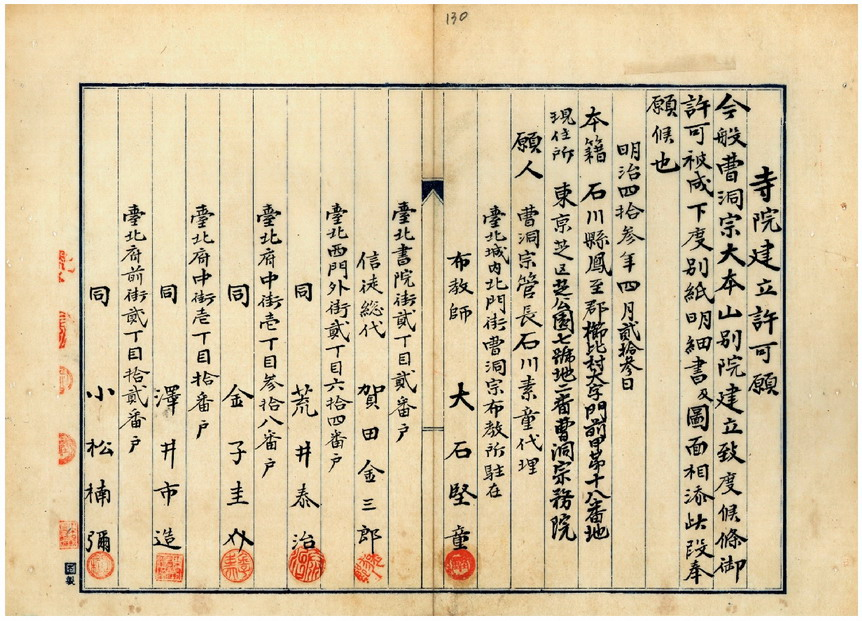 130
寺院建立許可願
今般曹洞宗大本山別院建立致度候條御
許可被成下度別紙明細書及圖面相添此段奉
願候也
明治四拾参年四月貳拾参日
本籍 石川縣鳳至郡櫛比村大字門前甲第十八番地
現住所 東京芝区芝公園七號地二番曹洞宗務院
願人 曹洞宗管長石川素童代理
臺北城内北門街曹洞宗布教所駐在
布教師 大石堅童
臺北書院街貳丁目貳番戶
信徒総代 賀田金三郎
臺北西門外街貳丁目六拾四番戶
同 荒井泰治
臺北府中街壱丁目参拾八番戶
同 金子圭介
臺北府中街壱丁目拾番戶
同 澤井市造
臺北府前街貳丁目拾貳番戶
同 小松楠彌